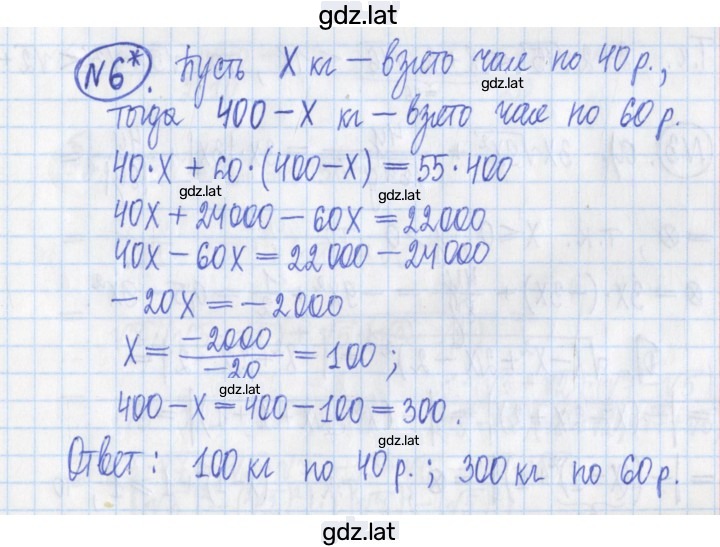 gdz.lat
N6*. Пусть X кг – взято чая по 40 р.,
gdz.lat
тогда 400 – X кг – взято чая по 60 р.
40·X + 60·(400–X) = 55·400
gdz.lat
40X + 24000 – 60X = 22000
40X – 60X = 22000 – 24000
–20X = –2000
X = –2000/–20 = 100;
gdz.lat
400 – X = 400 – 100 = 300.
gdz.lat
Ответ: 100 кг по 40 р.; 300 кг по 60 р.
gdz.lat